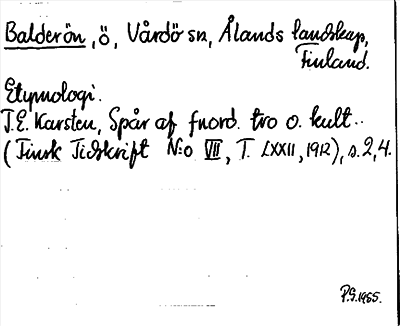 Balderön, ö, Vårdö sn, Ålands landskap,
Finland.
Etymologi.
T.E. Karsten, Spår af fnord. tro o. kult..
(Finsk Tidskrift N:o VII, T. LXXII, 1912), s.2,4.
P.S.1955.